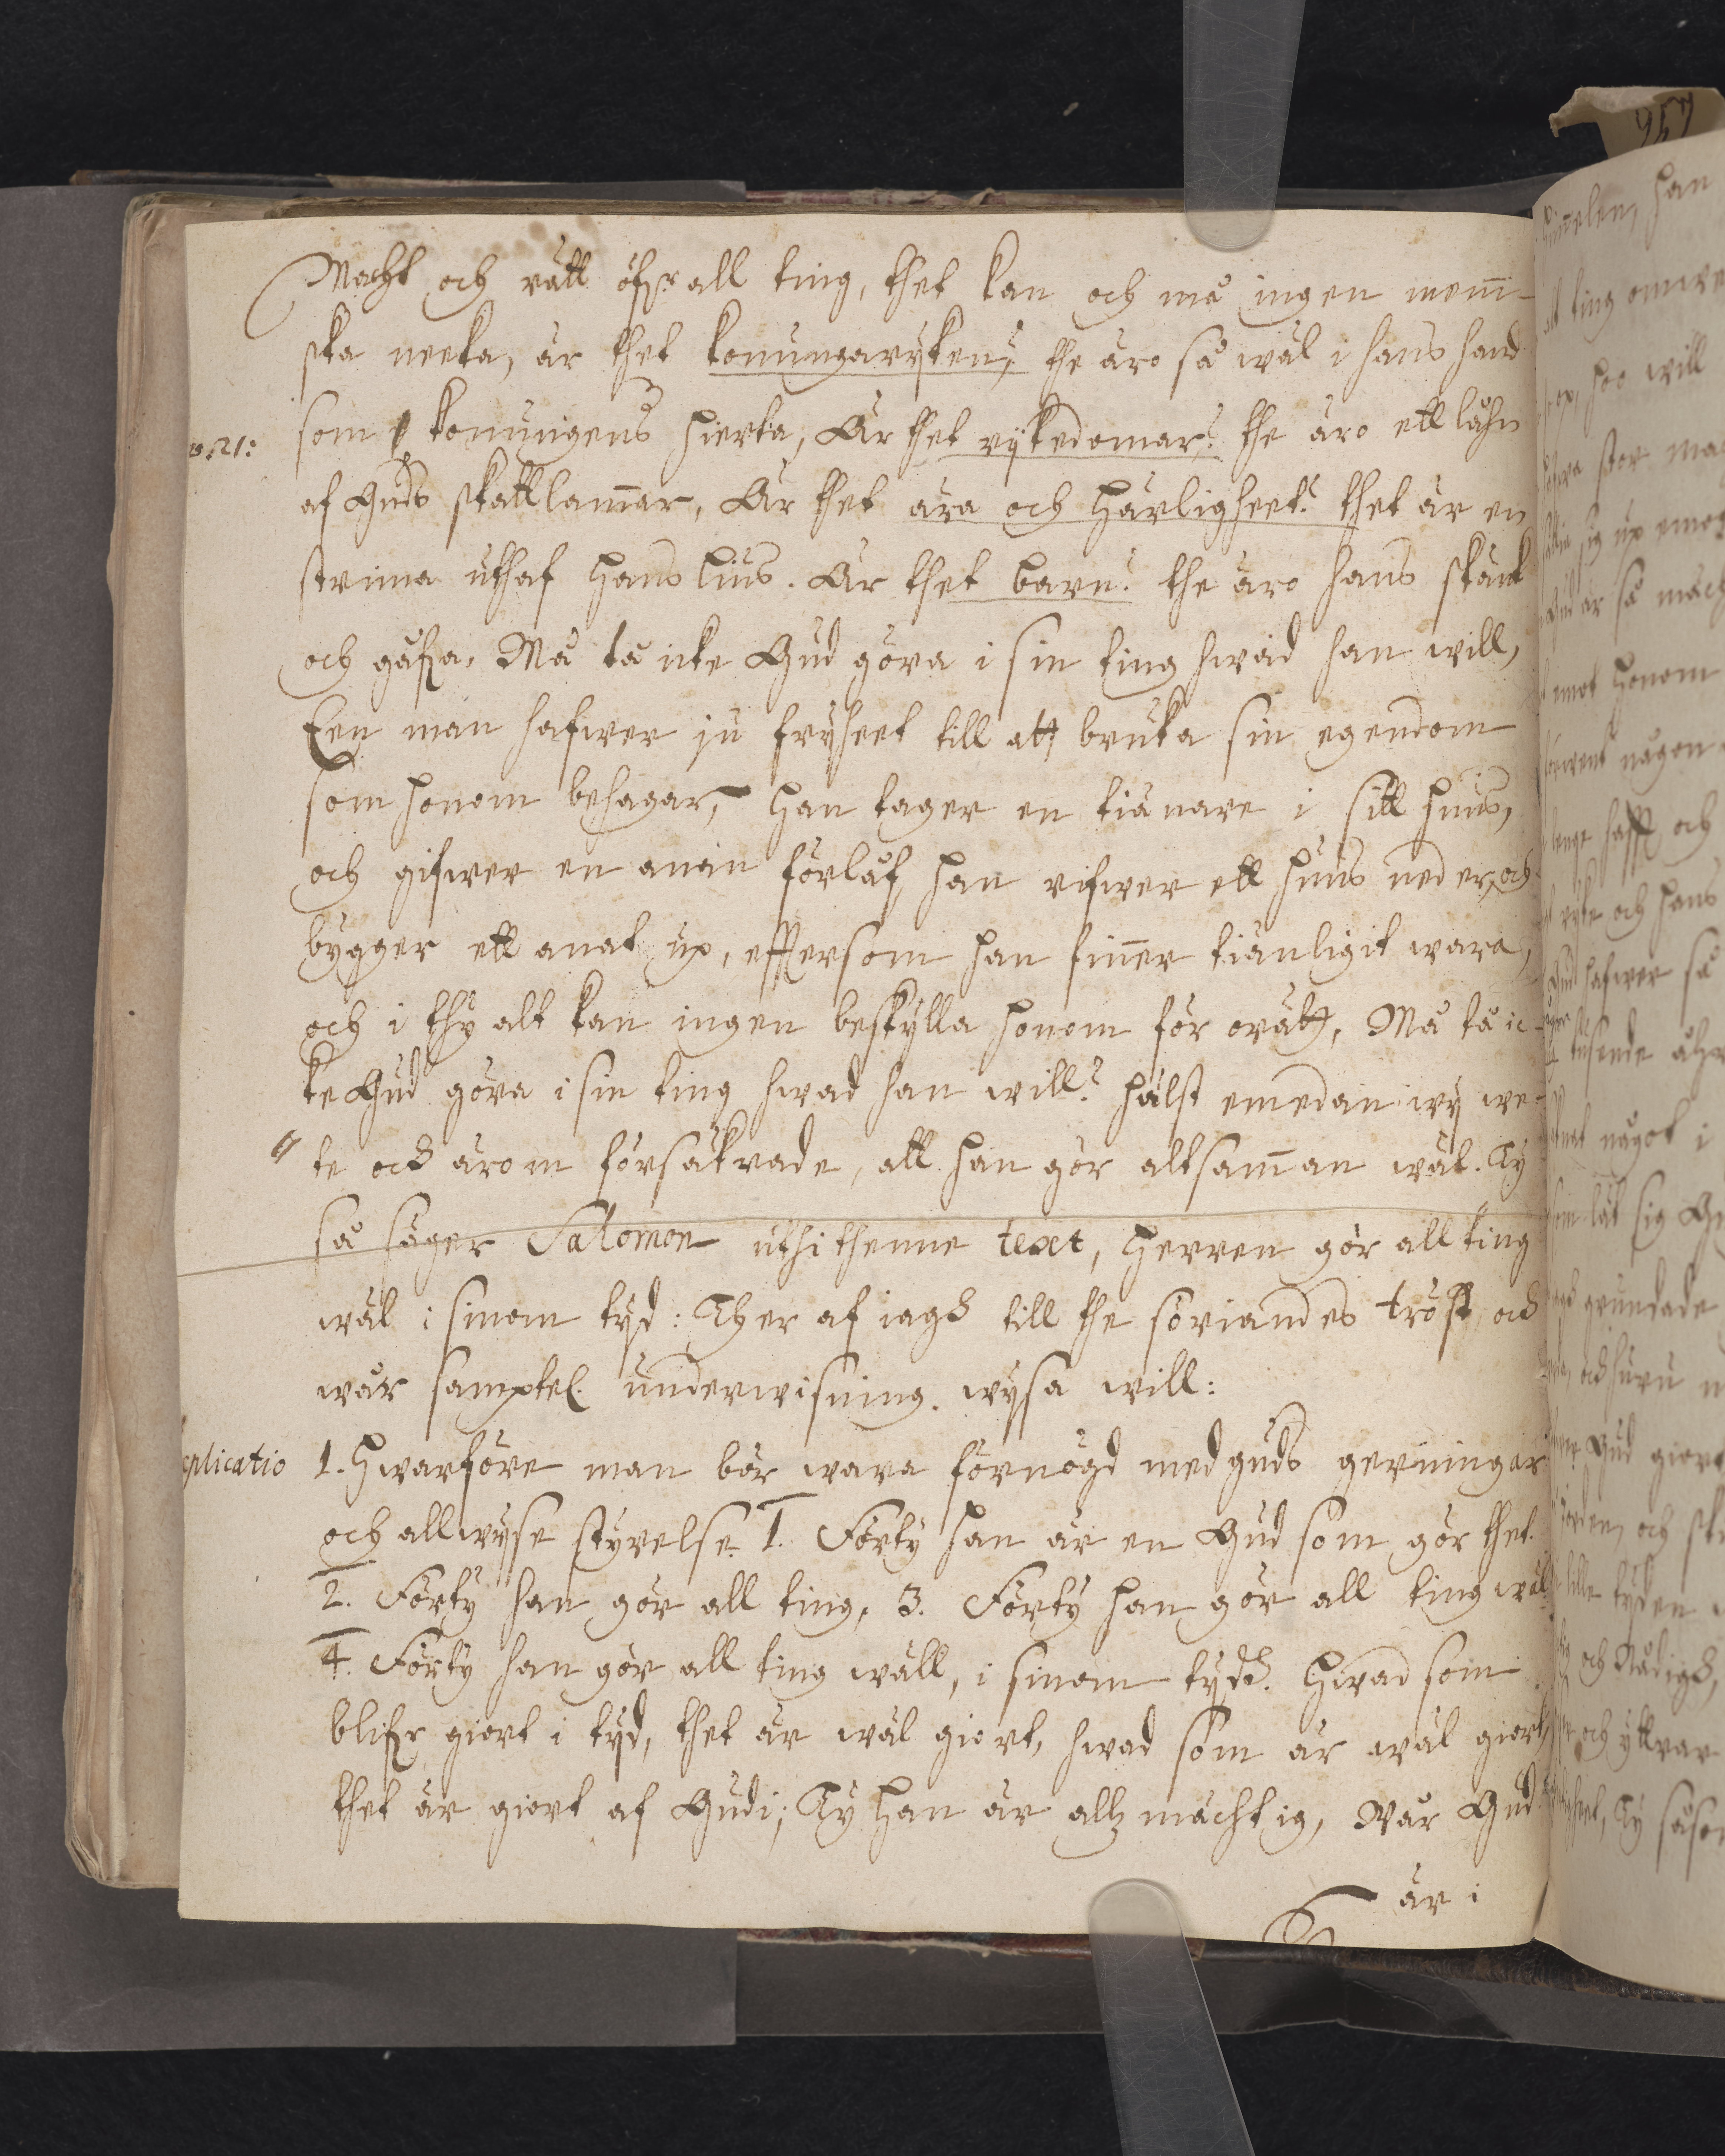 Macht och rätt öfr all ting, thet kan och må ingen menni-
ska neeka, är thet konungaryken, the äro så wäl i hans hand
v. 21: som konungens hierta, Är thet rykedomar? the äro ett lähn
af Guds skattkamar, Är thet ära och härligheet? thet är en
strima uthaf hans lius. Är thet barn? the äro hans skänk
och gåfva. Må tå icke Gud göra i sin ting hwad han will,
Een man hafwer ju fryheet till att bruka sin egendom
som honom behagar, han tager en tiänare i sitt huus,
och gifwer en annan förlåf, han rifwer ett huus neder, och
bygger ett anat up, efftersom han finner tiänligit wara,
och i thy alt kan ingen beskylla honom för orätt, Må tå ic-
ke Gud göra i sin ting hwad han will? hälst emedan wy we-
te och ärom försäkrade, att han gör altsamman wäl. Ty
så säger Salomon uthi thenne text, Herren gör all ting
wäl i sinom tyd: Ther af iagh till the söriandes tröst och
wår samptel. underwisning wysa will:
plicatio 1. Hwarföre man bör wara förnögd med guds gerningar
och allwyse styrelse. 1. Förty han är en Gud som gör thet.
2. Förty han gör all ting, 3. Förty han gör all ting wäl
4. Förty han gör all ting wäll, i sinom tydh. Hwad som
blifr giort i tyd, thet är wäl giort, hwad som är wäl giort,
thet är giort af Gudi; Ty han är allz mächtig, Wår Gud
är i